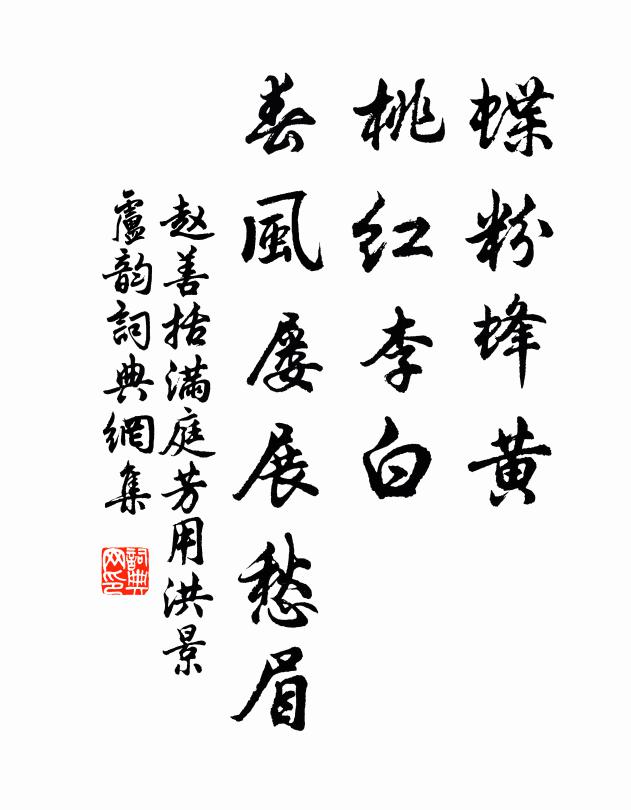 蝶粉蜂黄
桃红李白
春風屡展愁眉
赵善括满庭芳用洪景
盧韵詞典網集
詞典网印